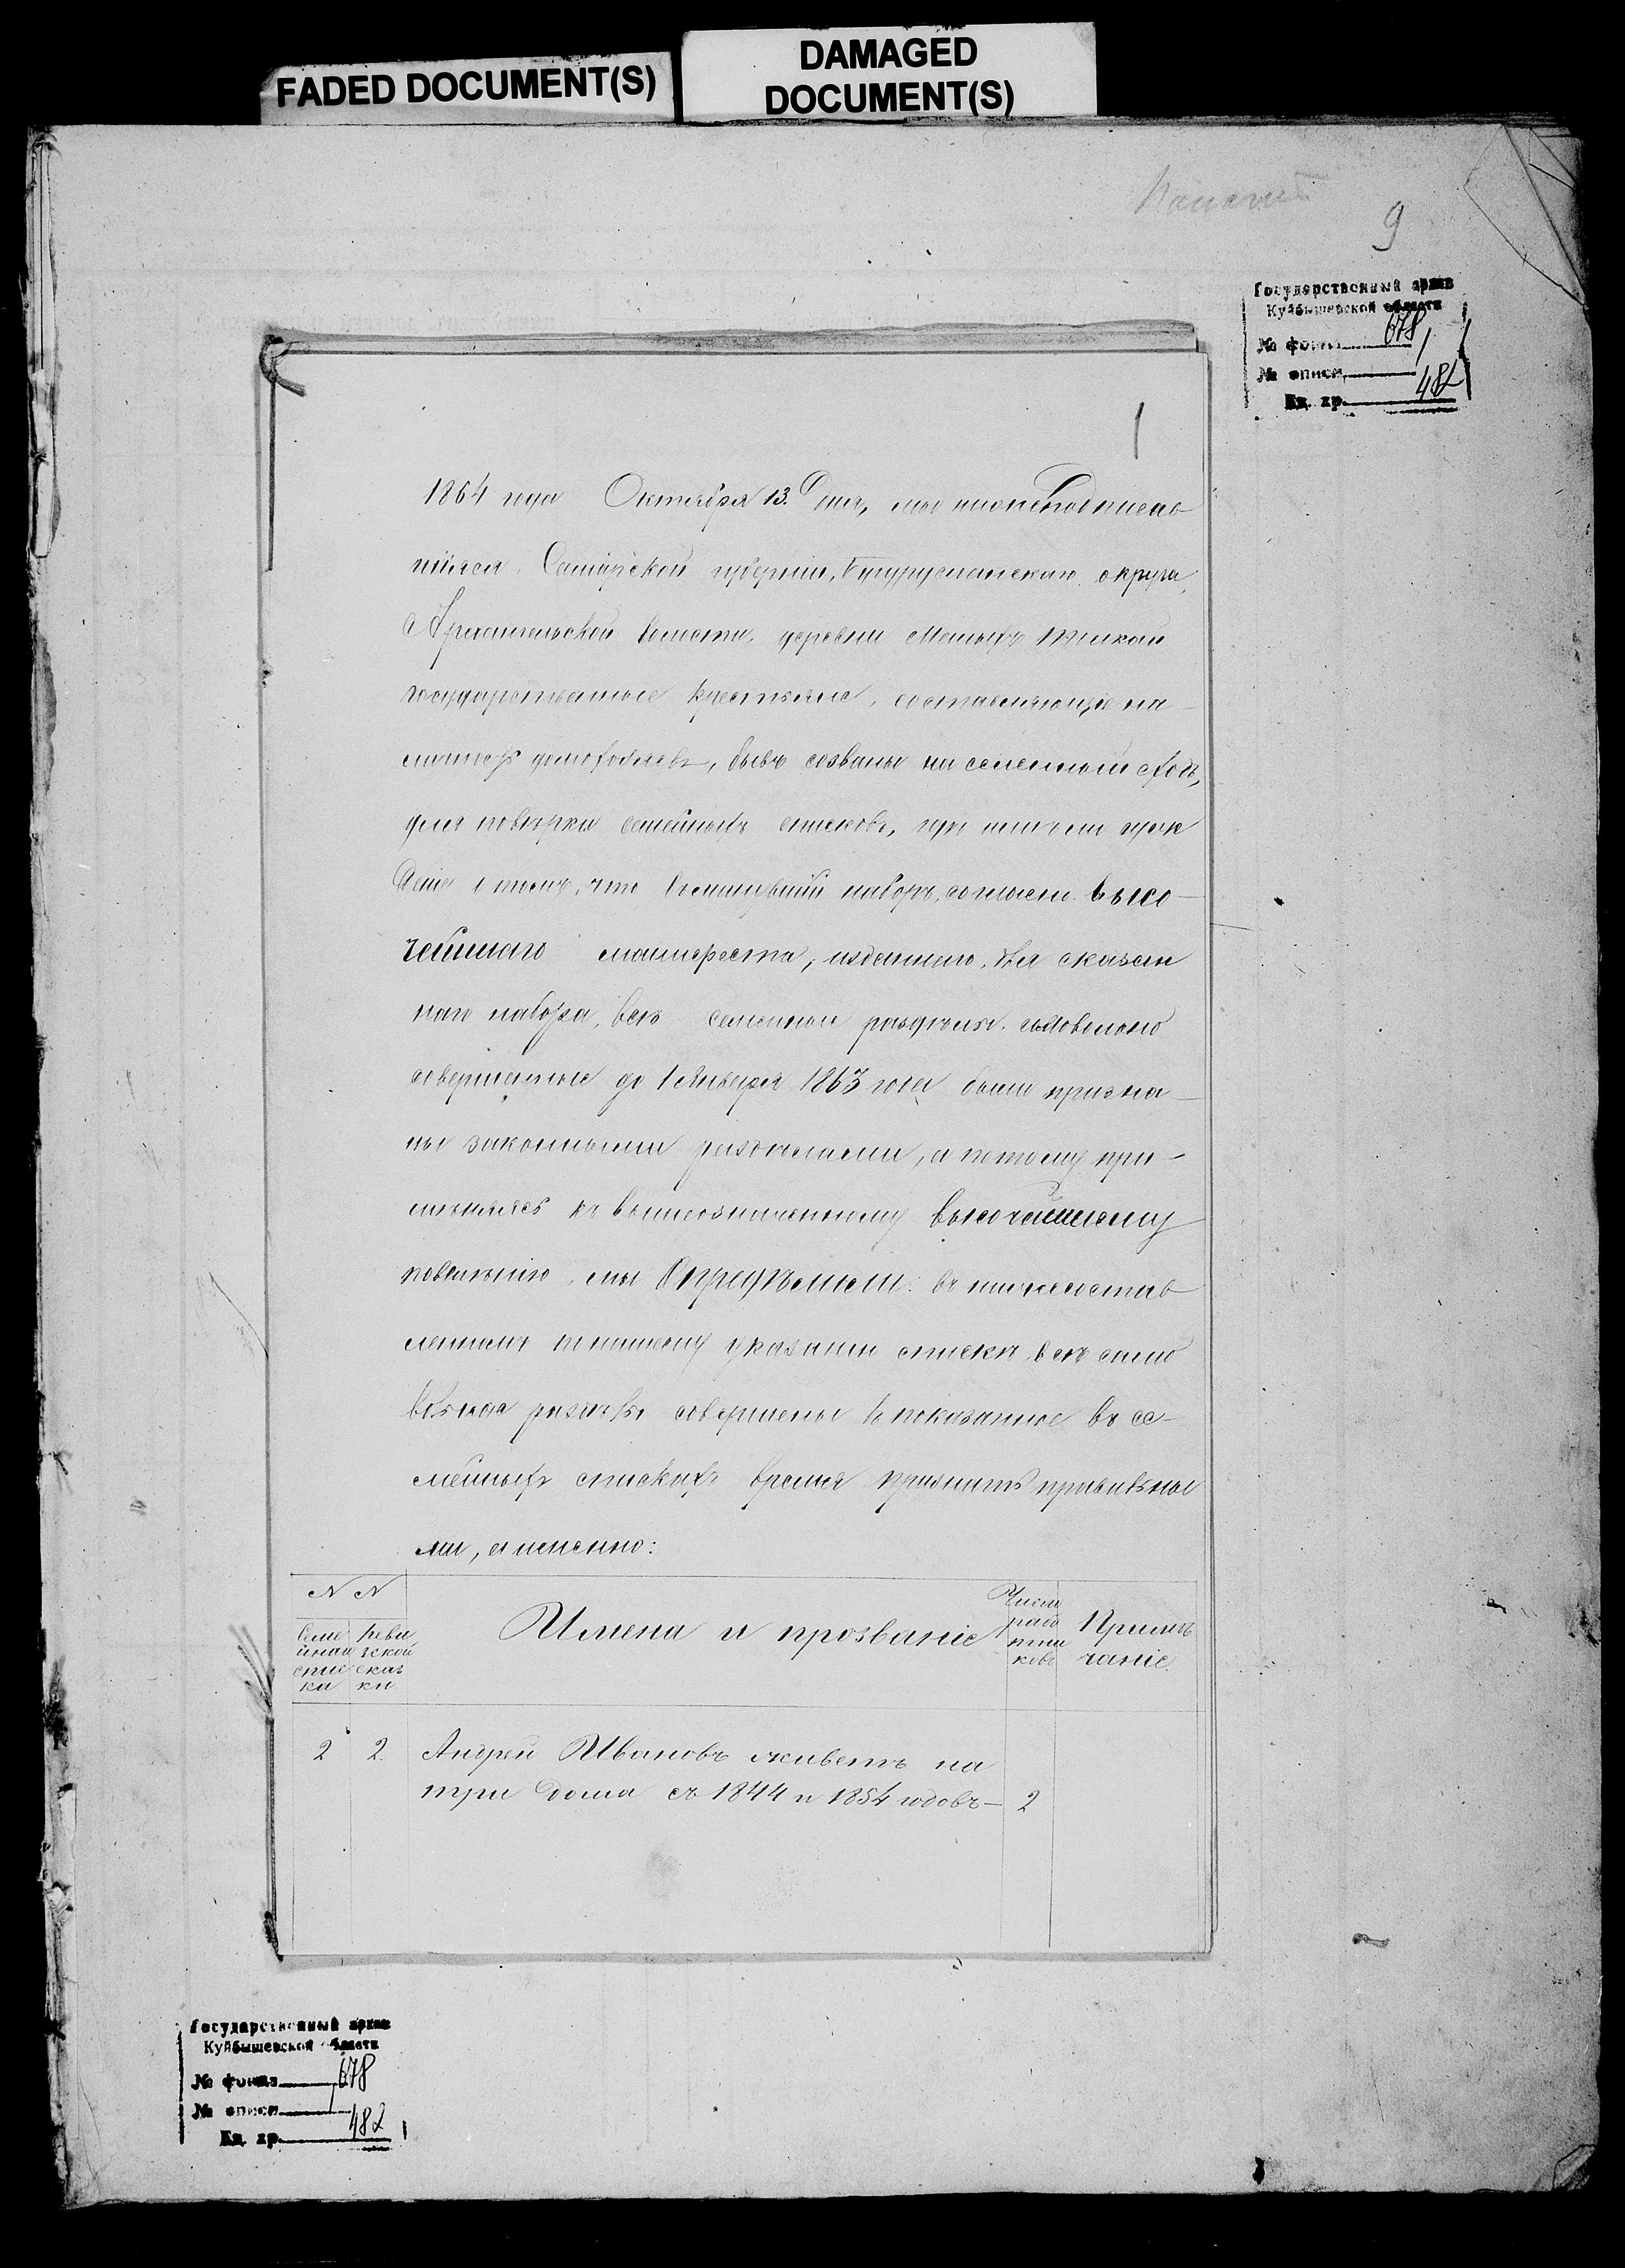 FADED DOCUMENT(S)
DAMAGED
DOCUMENT(S)
9
Государственный архив
Куйбышевской области
№ фонда 678
№ описи 1
Ед. хр. 482
1
1864 года Октября 13. Дня, мы нижеподписав
шіеся, Самарской губерніи, Бугурусланскаго округа,
Архангельской волости, деревни
государственные крестьяне, составляющіе на
домохозяевъ, бывъ созваны на сходъ,
для повѣрки семейныхъ списковъ, при
о томъ, что наборъ, согласно Высо-
чайшаго манифеста, изданнаго для сказан
наго набора, всѣ семейные раздѣлы
совершенные до 1 Января 1863 года были призна-
ны законными раздѣлами, а потому при-
мѣняясь къ вышеозначенному Высочайшему
повелѣнію, мы Опредѣлили: въ нижесостав
ленномъ по нашему указанію спискѣ, всѣ само
вольные совершенные въ показанное въ се-
мейныхъ спискахъ время признать правильны
ми, а именно:
N N
Семе йнаго спис ка
Реви зской сказ ки
Имена и прозваніе
Число рабо тни ковъ
Примѣ чаніе.
2 2. Андрей Ивановъ живетъ на
три дома съ 1844 и 1854 годовъ — 2
Государственный архив
Куйбышевской области
№ фонда 678
№ описи 1
Ед. хр. 482